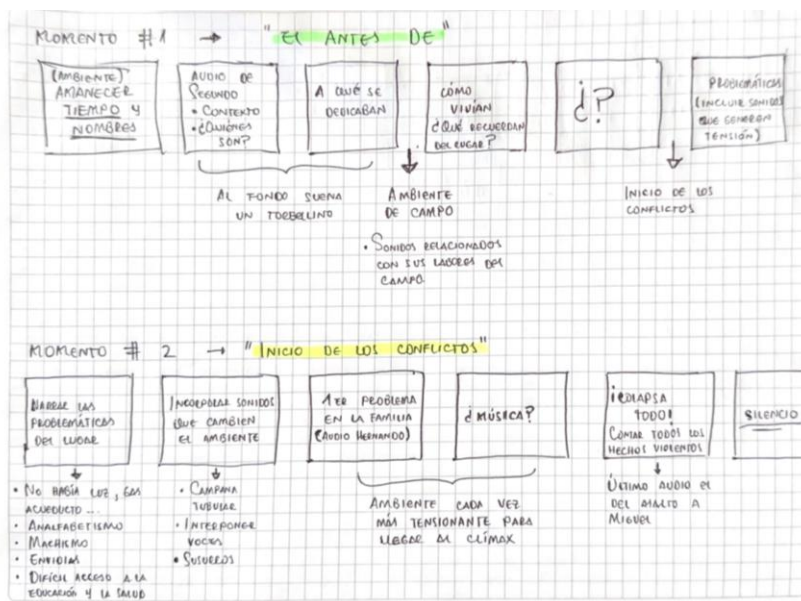 MOMENTO #1 → "EL ANTES DE"
(AMBIENTE)
AMANECER
TIEMPO Y
NOMBRES
AUDIO DE
SEGUNDO
• CONTEXTO
• ¿QUIÉNES
SON?
A QUÉ SE
DEDICABAN
CÓMO
VIVÍAN
¿QUÉ RECUERDAN
DEL LUGAR?
¿?
PROBLEMÁTICAS
(INCLUIR SONIDOS
QUE GENEREN
TENSIÓN)
AL FONDO SUENA
UN TORBELLINO
AMBIENTE
DE CAMPO
• SONIDOS RELACIONADOS
CON SUS LABORES DEL
CAMPO.
INICIO DE LOS
CONFLICTOS
MOMENTO # 2 → "INICIO DE LOS CONFLICTOS"
NARRAR LAS
PROBLEMÁTICAS
DEL LUGAR
INCORPORAR SONIDOS
QUE CAMBIEN
EL AMBIENTE
1ER PROBLEMA
EN LA FAMILIA
(AUDIO HERNANDO)
¿MÚSICA?
¡COLAPSA
TODO!
CONTAR TODOS LOS
HECHOS VIOLENTOS
SILENCIO
• NO HABÍA LUZ, GAS
ACUEDUCTO...
• ANALFABETISMO
• MACHISMO
• ENVIDIAS
• DIFÍCIL ACCESO A LA
EDUCACIÓN Y LA SALUD
• CAMPANA
TUBULAR
• INTERPONER
VOCES
• SUSURROS
AMBIENTE CADA VEZ
MÁS TENSIONANTE PARA
LLEGAR AL CLÍMAX
ÚLTIMO AUDIO EL
DEL ASALTO A
MIGUEL